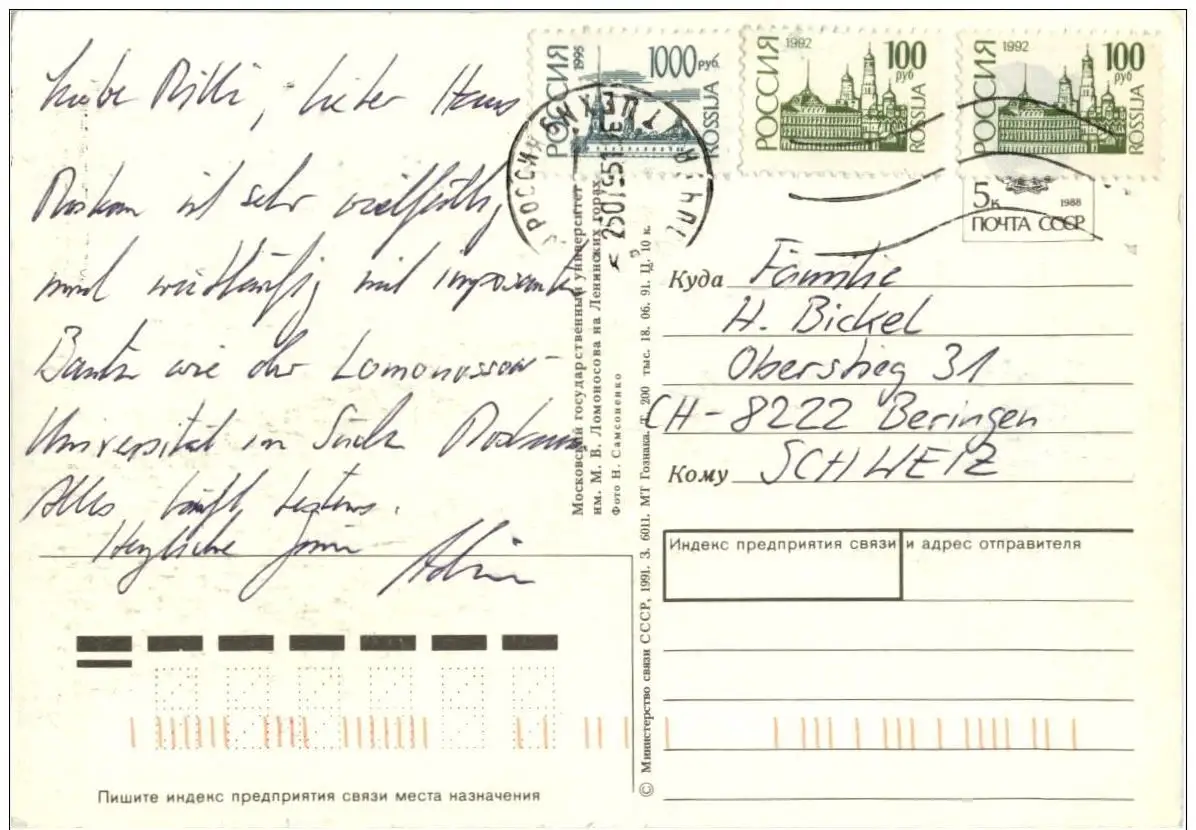 Liebe Rikki, lieber Hans
Moskau ist sehr vielfältig
und weitläufig mit imposanten
Bauten wie der Lomonossow-
Universität im Süden Moskaus.
Alles läuft bestens.
Herzliche Grüsse
РОССИЯ 1995
1000 руб.
ROSSIJA
РОССИЯ 1992
100 руб
ROSSIJA
РОССИЯ 1992
100 руб
ROSSIJA
5к 1988
ПОЧТА СССР
РОССИЯ
Московский государственный университет
им. М. В. Ломоносова на Ленинских горах
Фото Н. Самсоненко
© Министерство связи СССР, 1991. З. 6011. МТ Гознака. Т. 200 тыс. 18. 06. 91. Ц. 10 к.
Куда Familie
H. Bickel
Oberstieg 31
CH-8222 Beringen
Кому SCHWEIZ
Индекс предприятия связи и адрес отправителя
Пишите индекс предприятия связи места назначения